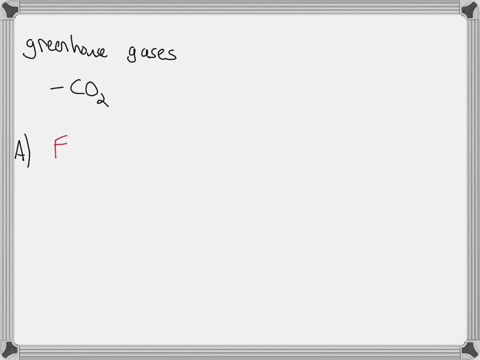 greenhouse gases
- CO2
A) F